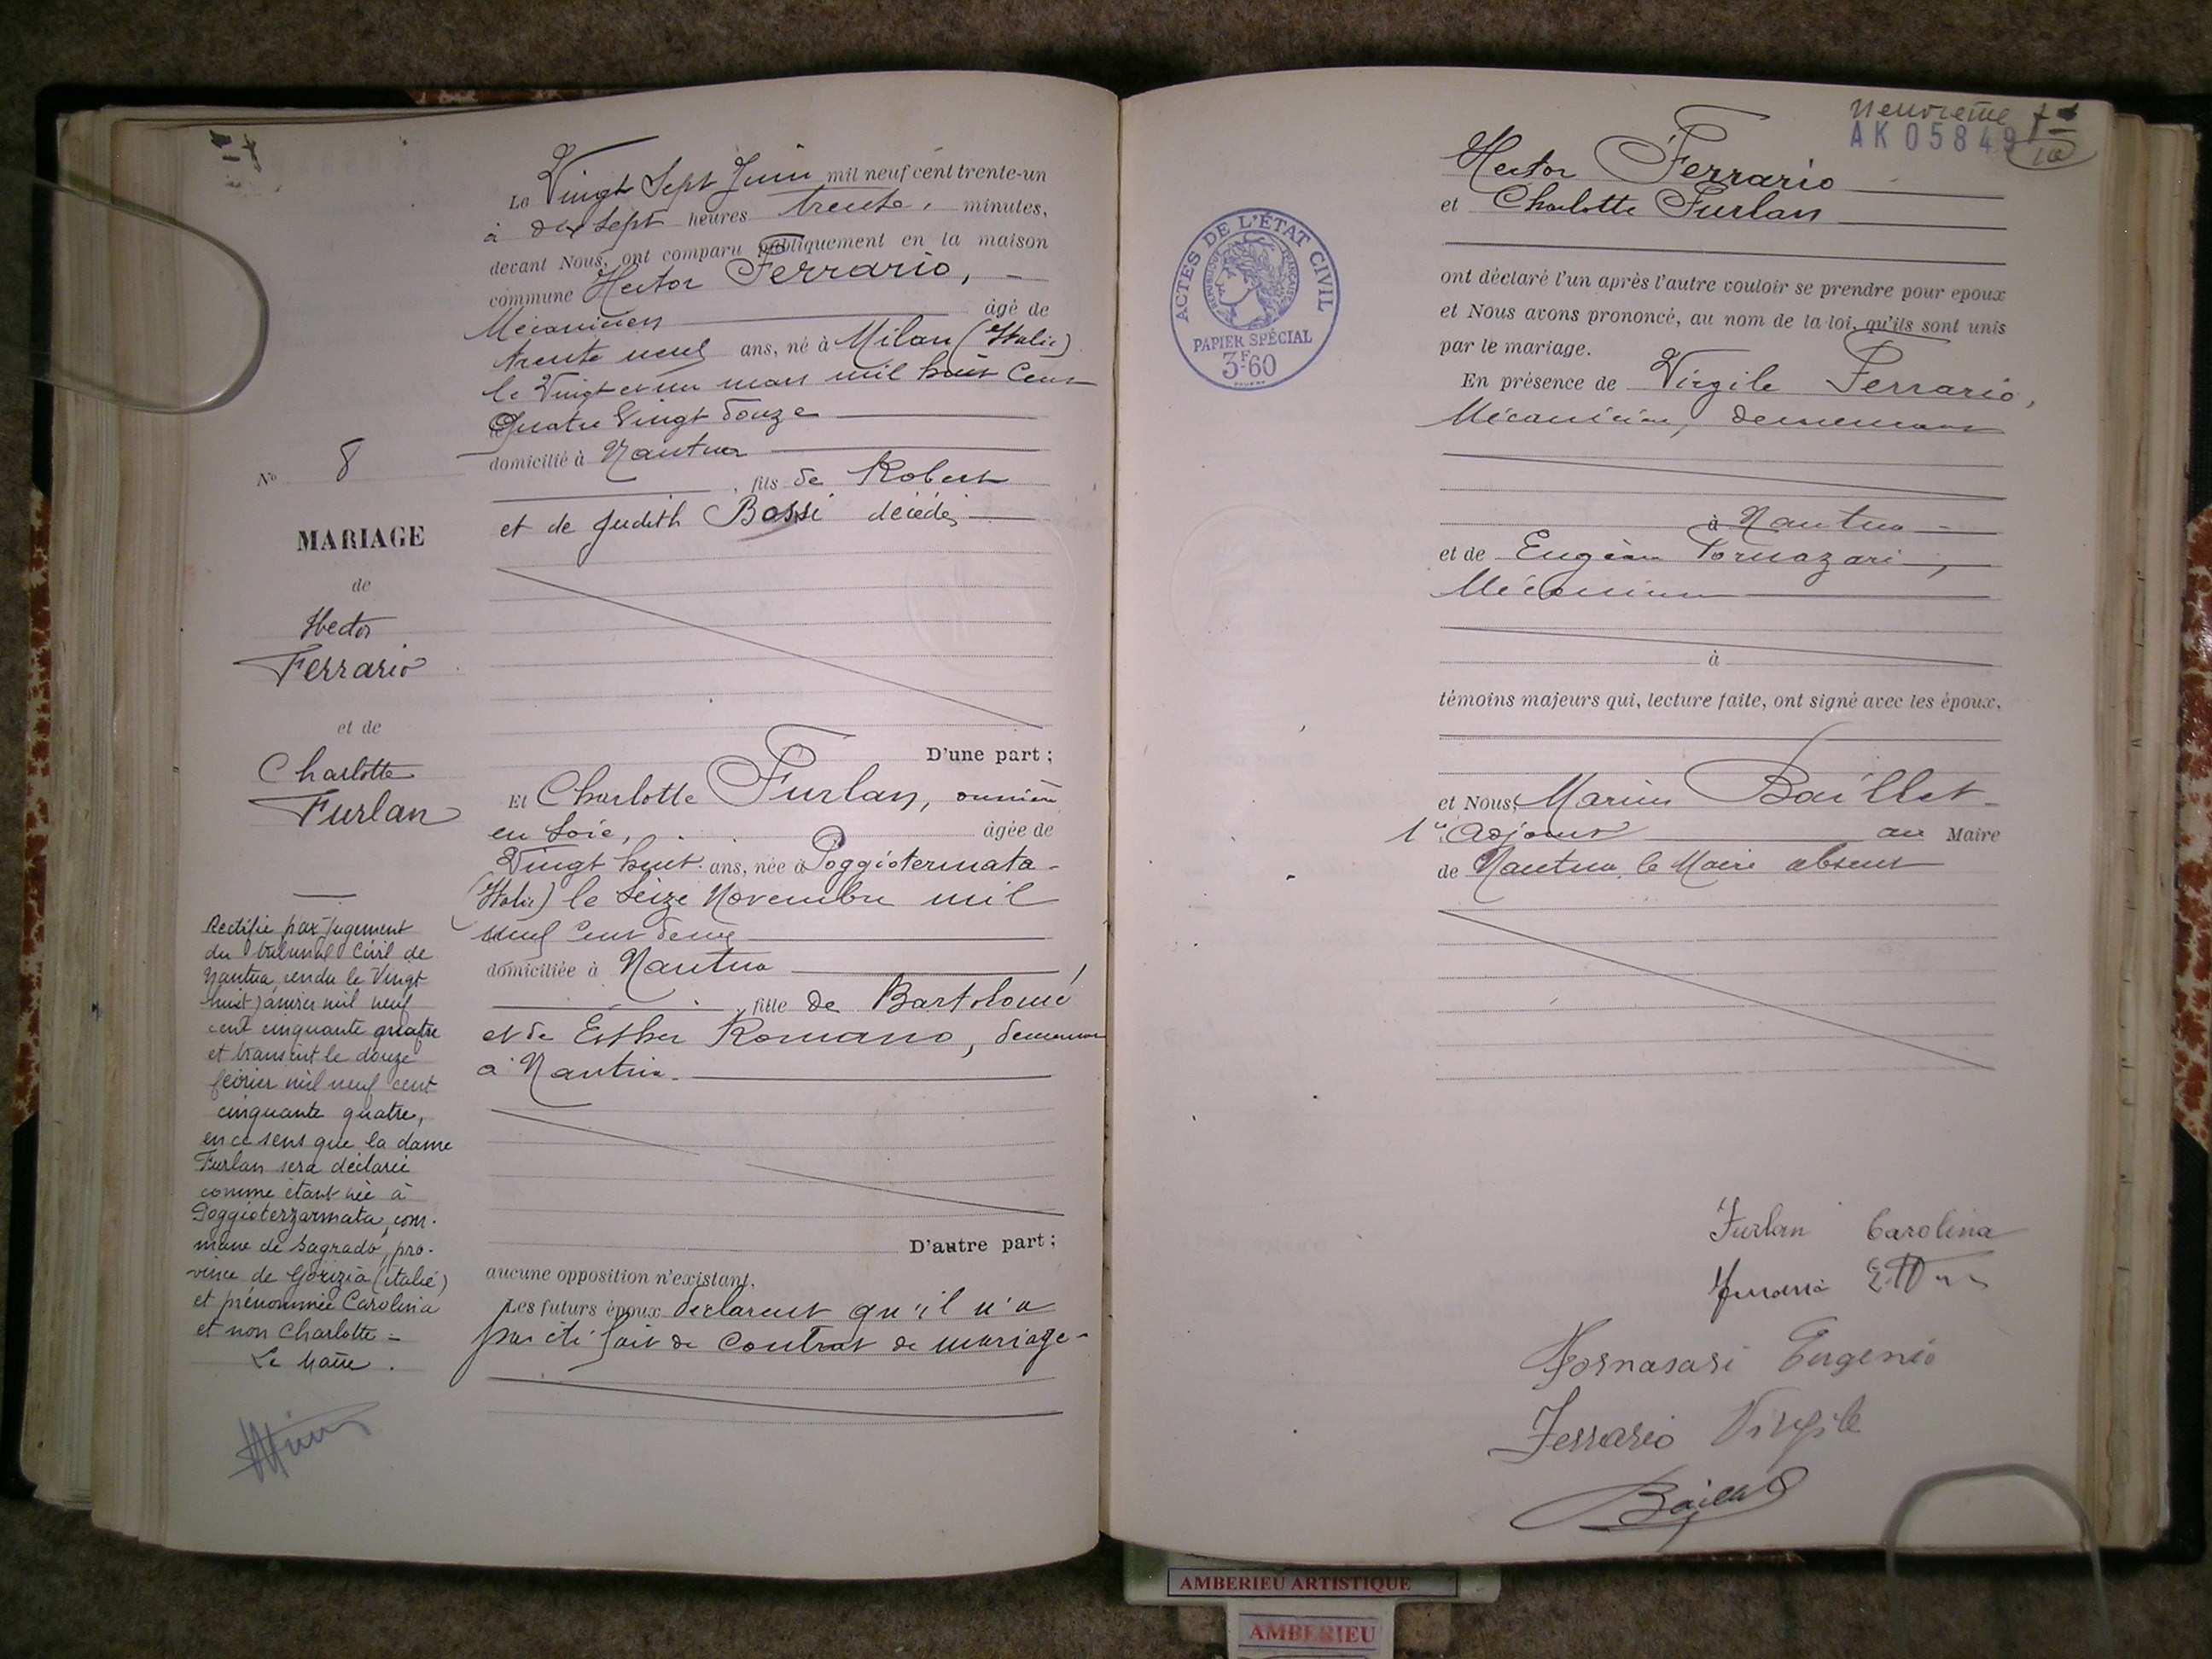 Le Vingt Sept Juin mil neuf cent trente-un
à dix sept heures trente, minutes,
devant Nous, ont comparu publiquement en la maison
commune Hector Ferrario,
Mécanicien âgé de
trente neuf ans, né à Milan (Italie)
le Vingt et un mars mil huit Cent
Quatre Vingt Douze
domicilié à Nantua
, fils de Robert
et de Judith Bossi décédés
D'une part ;
Et Charlotte Furlan, ouvrière
en Soie, âgée de
Vingt huit ans, née à Poggiotermata
(Italie) le Seize Novembre mil
neuf Cent deux
domiciliée à Nantua,
, fille de Bartolomé
et de Esther Romano, demeurant
à Nantua.
D'autre part ;
aucune opposition n'existant,
Les futurs époux déclarent qu'il n'a
pas été fait de Contrat de mariage
No 8
MARIAGE
de
Hector
Ferrario
et de
Charlotte
Furlan
Rectifié par jugement
du tribunal Civil de
Nantua, rendu le Vingt
huit janvier mil neuf
cent cinquante quatre
et transcrit le douze
février mil neuf cent
cinquante quatre,
en ce sens que la dame
Furlan sera déclarée
comme étant née à
Poggioterzarmata, com-
mune de Sagrado, pro-
vince de Gorizia (italie)
et prénommée Carolina
et non Charlotte =
Le Maire.
neuvième
AK 05849
ACTES DE L'ÉTAT CIVIL
RÉPUBLIQUE FRANÇAISE
PAPIER SPÉCIAL
3F60
Hector Ferrario
et Charlotte Furlan
ont déclaré l'un après l'autre vouloir se prendre pour époux
et Nous avons prononcé, au nom de la loi, qu'ils sont unis
par le mariage.
En présence de Virgile Ferrario,
Mécanicien, demeurant
à Nantua
et de Eugène Fornazari,
Mécanicien
à
témoins majeurs qui, lecture faite, ont signé avec les époux,
et Nous, Marius Baillet
1er Adjoint au Maire
de Nantua, le Maire absent
Furlan Carolina
Ferrario Ettore
Fornasari Eugenio
Ferrario Virgile
Baillet
AMBERIEU ARTISTIQUE
AMBERIEU